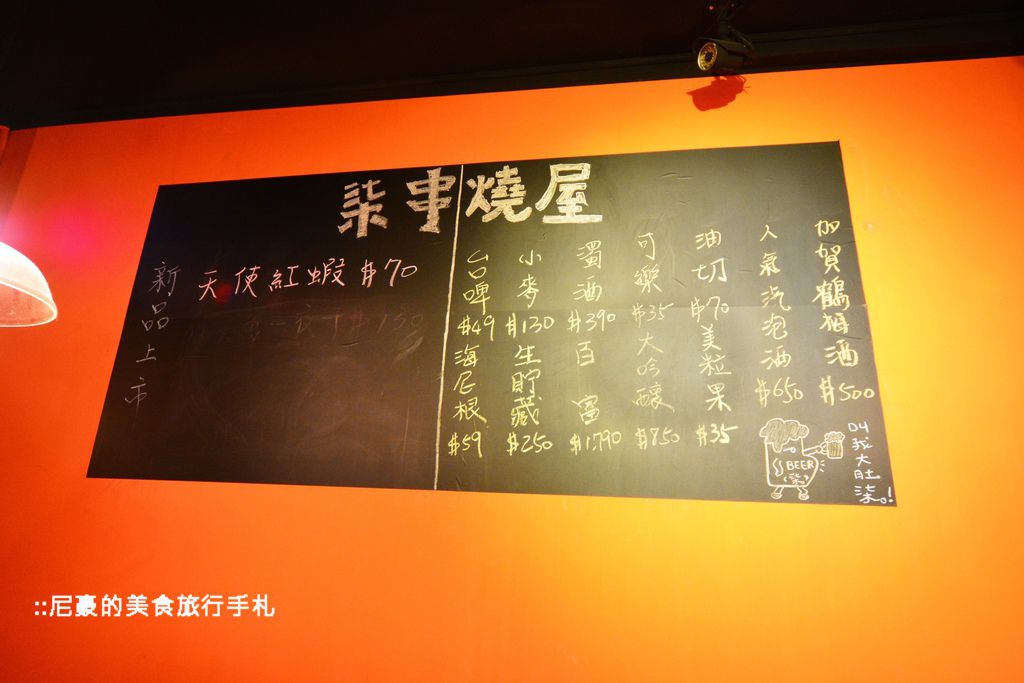 柒串燒屋
新品上市
天使紅蝦 $70
加賀鶴梅酒 $500
人氣汽泡酒 $650
油切 $70
美粒果 $35
可樂 $35
大吟釀 $850
濁酒 $390
百富 $1790
小麥 $130
生貯藏 $250
台啤 $49
海尼根 $59
BEER
柒
叫我大肚柒。!
::尼豪的美食旅行手札